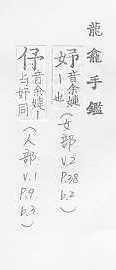 龍龕手鑑
妤音余婕丨也(女部 v.2 p.38 b.2)
伃音余婕丨与妤同(人部 v.1 p.9 b.3)